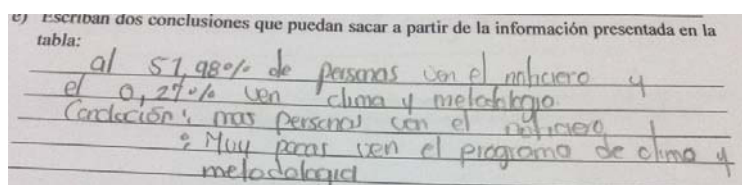 e) Escriban dos conclusiones que puedan sacar a partir de la información presentada en la
tabla:
al 51,98% de personas ven el noticiero y
el 0,27% ven clima y metodologio.
Conclución: mas personas ven el noticiero
: Muy pocas ven el programa de clima y
metodologia